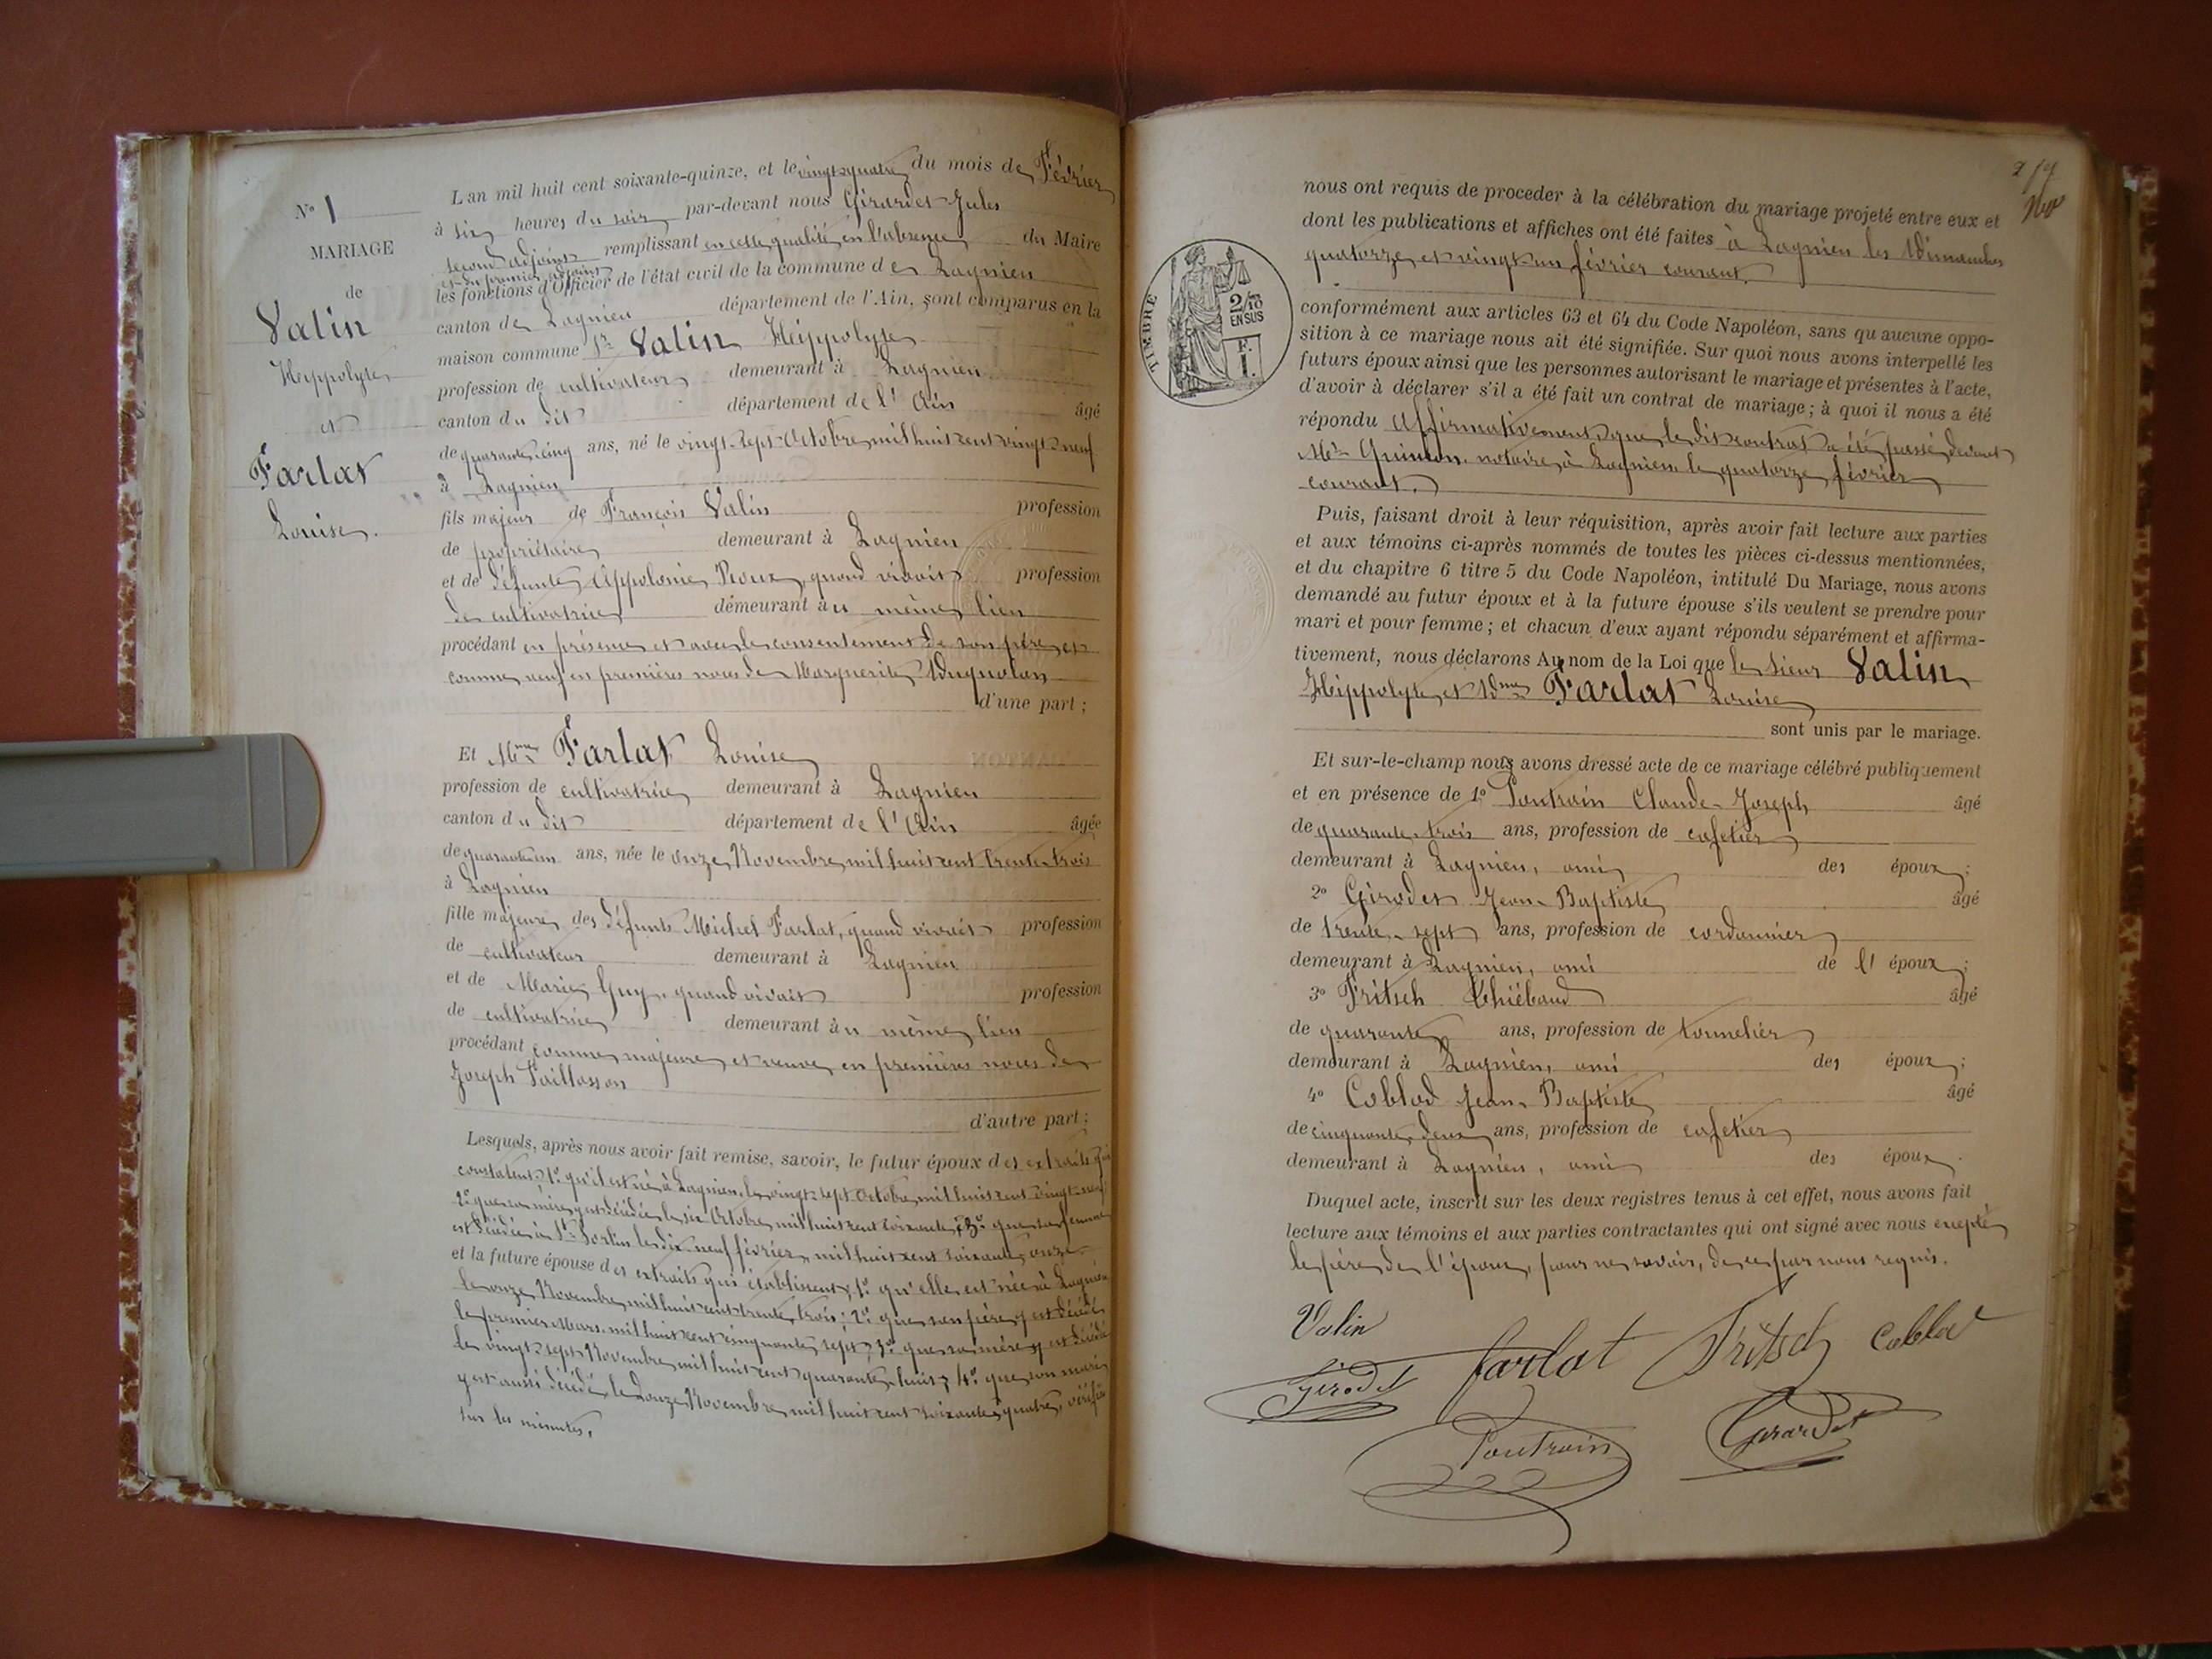 N° 1
MARIAGE
de
Valin
Hippolyte
et
Farlat
Louise.
L'an mil huit cent soixante-quinze, et le vingt-quatre du mois de Février
à six heures du soir par-devant nous Girardet Jules
second adjoint remplissant en cette qualité, en l'absence du Maire
et du premier adjoint
les fonctions d'Officier de l'état civil de la commune de Lagnieu
canton de Lagnieu département de l'Ain, sont comparus en la
maison commune Sr Valin Hippolyte
profession de cultivateur demeurant à Lagnieu
canton du dit département de l'Ain âgé
de quarante-cinq ans, né le vingt-sept Octobre mil huit cent vingt-neuf
à Lagnieu
fils majeur de François Valin profession
de propriétaire demeurant à Lagnieu
et de défunte Appolonie Peoux, quand vivait profession
de cultivatrice demeurant au même lieu
procédant en présence et avec le consentement de son père, et
comme veuf en premières noces de Marguerite Duquolon
d'une part ;
Et Mme Farlat Louise
profession de cultivatrice demeurant à Lagnieu
canton du dit département de l'Ain âgée
de quarante-un ans, née le onze Novembre mil huit cent trente-trois
à Lagnieu
fille majeure des défunts Michel Farlat, quand vivait profession
de cultivateur demeurant à Lagnieu
et de Marie Guy, quand vivait profession
de cultivatrice demeurant au même lieu
procédant comme majeure et veuve en premières noces de
Joseph Paillasson
d'autre part ;
Lesquels, après nous avoir fait remise, savoir, le futur époux des extraits qui
constatent, 1° qu'il est né à Lagnieu, le vingt-sept Octobre mil huit cent vingt-neuf
2° que sa mère y est décédée le six Octobre mil huit cent soixante, 3° que sa femme
est décédée à St Sorlin le dix-neuf février mil huit cent soixante onze
et la future épouse des extraits qui établissent, 1° qu'elle est née à Lagnieu
le onze Novembre mil huit cent trente-trois ; 2° que son père y est décédé
le premier Mars mil huit cent cinquante sept, 3° que sa mère y est décédée
le vingt-sept Novembre mil huit cent quarante-huit, 4° que son mari
y est aussi décédé le douze Novembre mil huit cent soixante-quatre, vérifié
sur les minutes.
TIMBRE
2/10
EN SUS
F.
1.
nous ont requis de proceder à la célébration du mariage projeté entre eux et
dont les publications et affiches ont été faites à Lagnieu les Dimanches
quatorze et vingt-un février courant.
conformément aux articles 63 et 64 du Code Napoléon, sans qu'aucune oppo-
sition à ce mariage nous ait été signifiée. Sur quoi nous avons interpellé les
futurs époux ainsi que les personnes autorisant le mariage et présentes à l'acte,
d'avoir à déclarer s'il a été fait un contrat de mariage ; à quoi il nous a été
répondu affirmativement, que le dit contrat a été passé devant
Me Quinson, notaire à Lagnieu le quatorze février
courant.
Puis, faisant droit à leur réquisition, après avoir fait lecture aux parties
et aux témoins ci-après nommés de toutes les pièces ci-dessus mentionnées,
et du chapitre 6 titre 5 du Code Napoléon, intitulé Du Mariage, nous avons
demandé au futur époux et à la future épouse s'ils veulent se prendre pour
mari et pour femme ; et chacun d'eux ayant répondu séparément et affirma-
tivement, nous déclarons Au nom de la Loi que le Sieur Valin
Hippolyte, et Dme Farlat Louise
sont unis par le mariage.
Et sur-le-champ nous avons dressé acte de ce mariage célébré publiquement
et en présence de 1° Poutrain Claude-Joseph âgé
de quarante-trois ans, profession de cafetier
demeurant à Lagnieu, ami des époux ;
2° Girodet Jean-Baptiste âgé
de trente-sept ans, profession de cordonnier
demeurant à Lagnieu, ami de l'époux ;
3° Fritsch Thiébaud âgé
de quarante ans, profession de tonnelier
demeurant à Lagnieu, ami des époux ;
4° Coblod Jean-Baptiste âgé
de cinquante-deux ans, profession de cafetier
demeurant à Lagnieu, ami des époux.
Duquel acte, inscrit sur les deux registres tenus à cet effet, nous avons fait
lecture aux témoins et aux parties contractantes qui ont signé avec nous excepté
le père de l'époux, pour ne savoir, de ce par nous requis.
Valin
Girodet farlat Fritsch Coblod
Poutrain Girardet